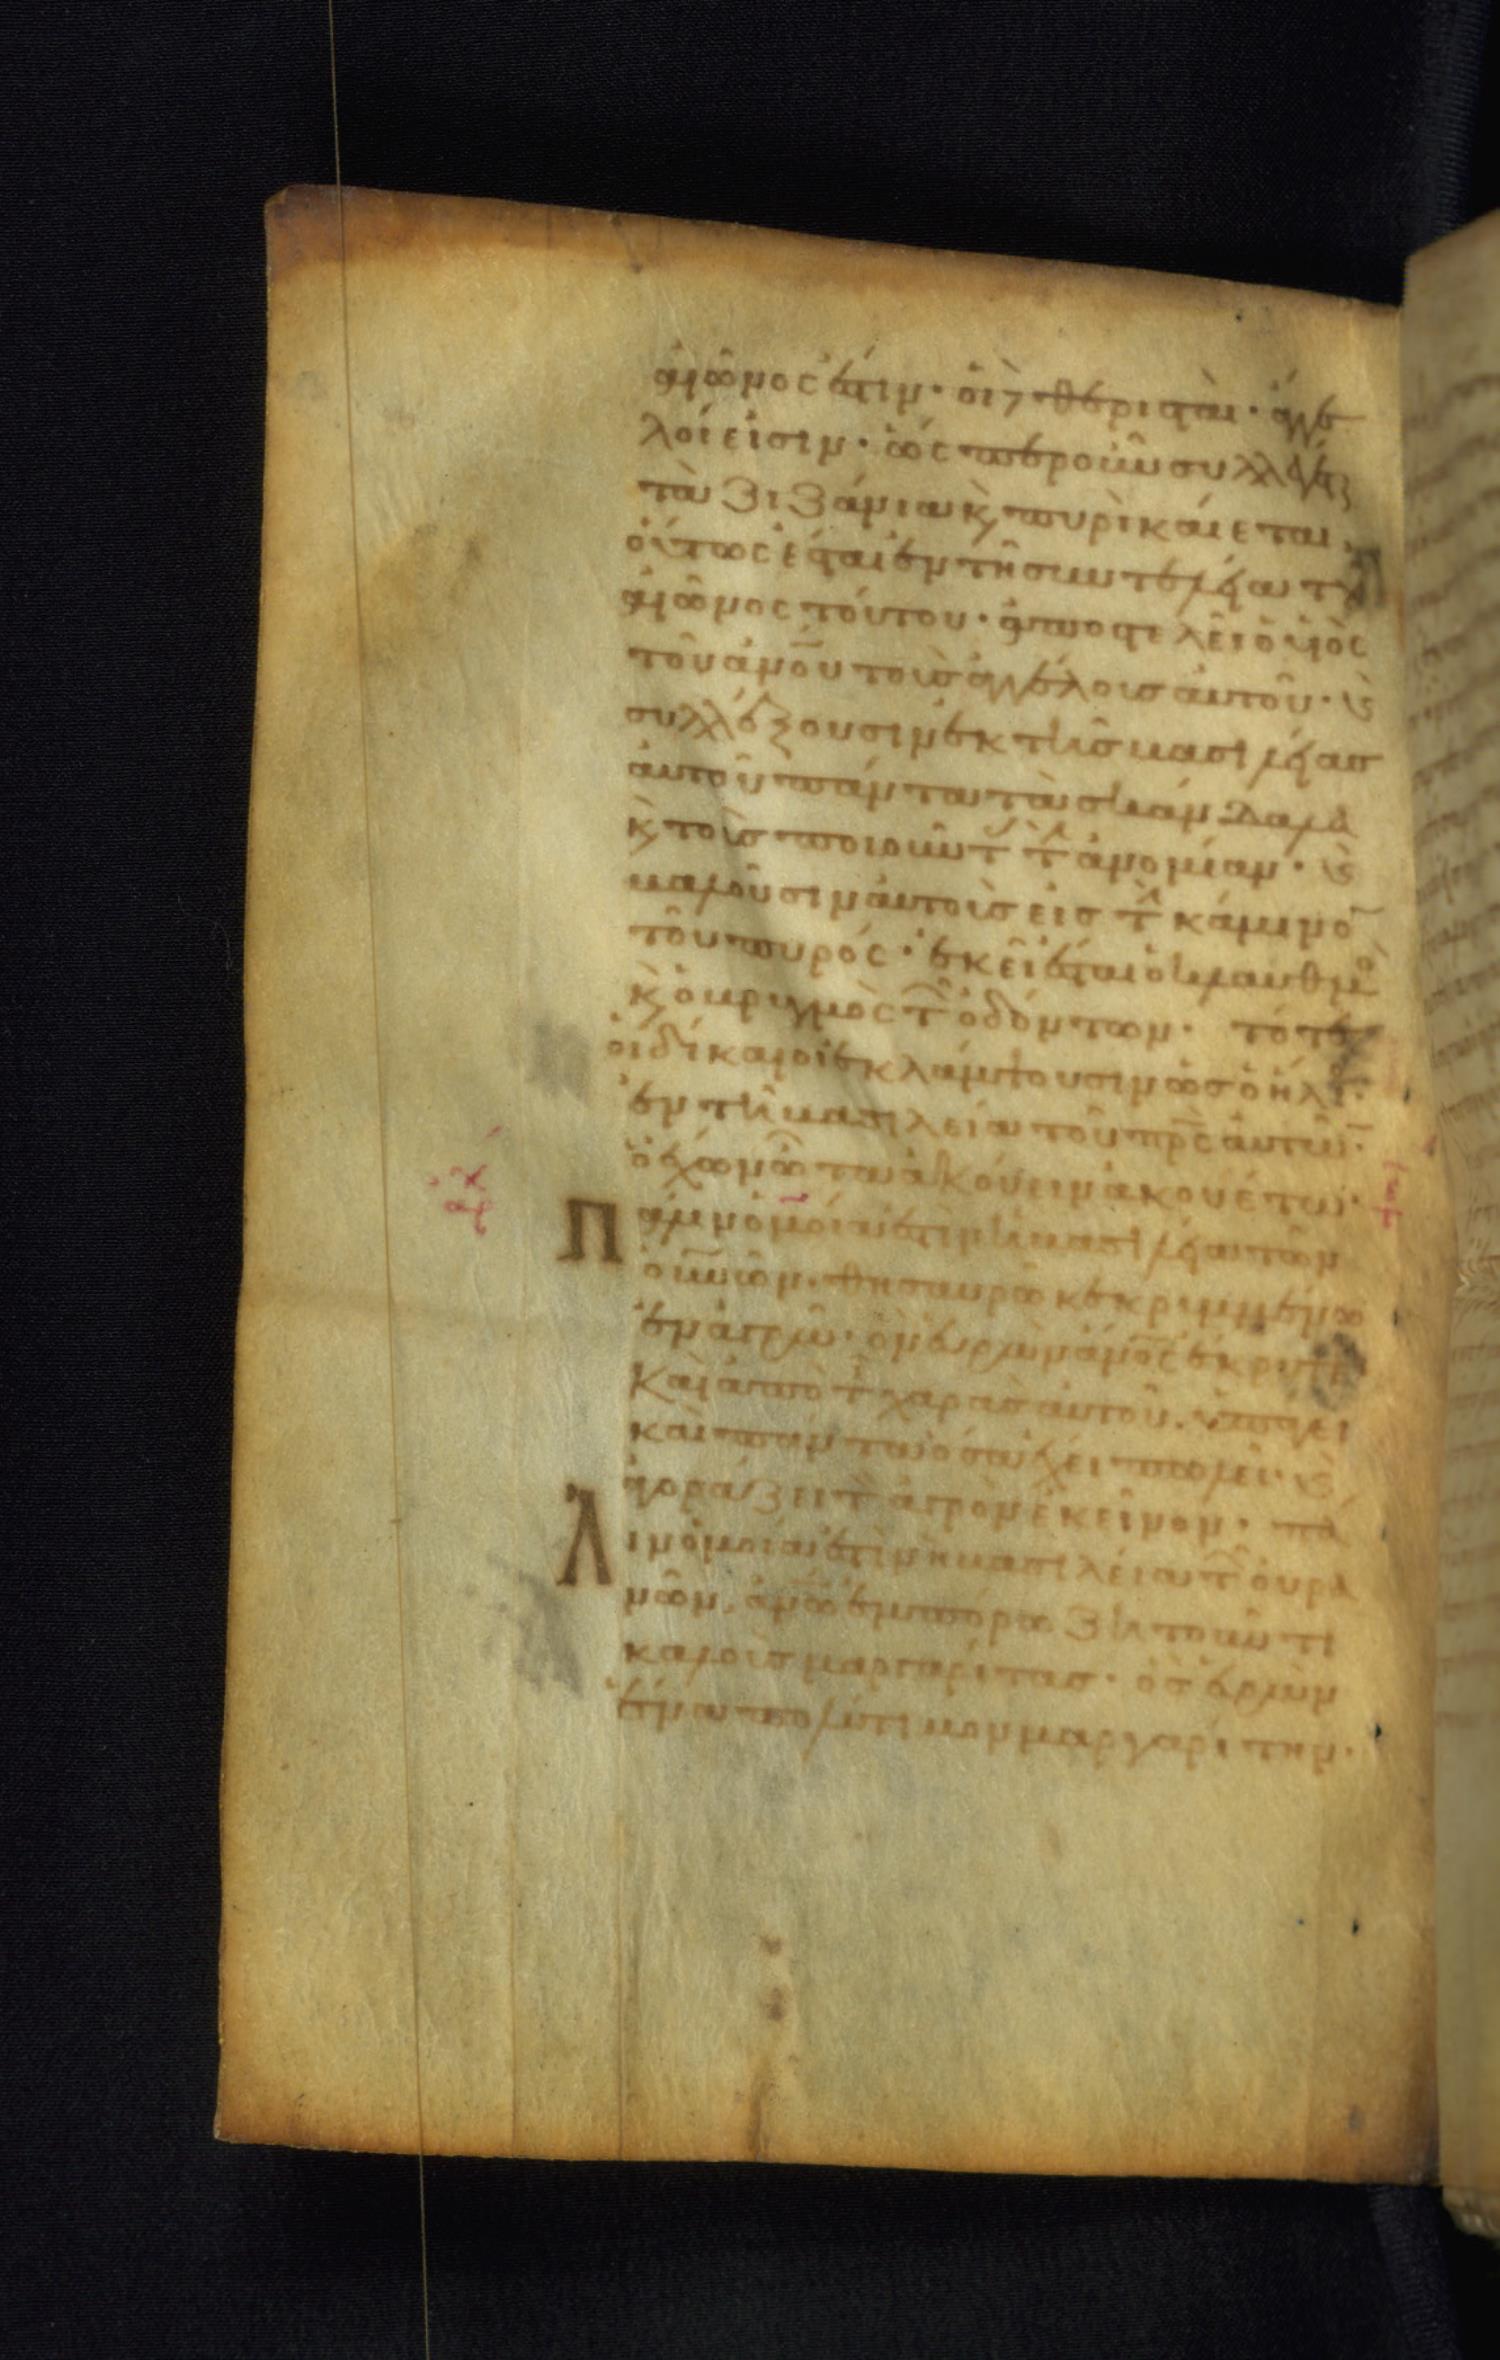 αἰῶνος ἐστιν· οἱ δὲ θερισταὶ· ἄγγε
λοί εἰσιν· ὥσπερ οὖν συλλέγεται
τὰ ζιζάνια κ̀ πυρὶ καίεται,
οὕτως ἔσται ἐν τῆ συντελεία τοῦ
αἰῶνος τούτου· ἀποστελεῖ ὁ υἱὸς
τοῦ ἀν̅ου τοὺς ἀγγέλους αὐτοῦ· κ̀
συλλέξουσιν ἐκ τῆς βασιλείας
αὐτοῦ πάντα τὰ σκάνδαλα
κ̀ τοὺς ποιοῦντ τ̀ ἀνομίαν· κ̀
βαλοῦσιν αὐτοὺς εἰς τ̀ κάμινο̅
τοῦ πυρός· ἐκεῖ ἔσται ὁ κλαυθμὸ
κ̀ ὁ βρυγμὸς τ̑ ὀδόντων· τότε
οἱ δίκαιοι ἐκλάμψουσιν ὡς ὁ ἥλι·
ἐν τῆ βασιλεία τοῦ πρ̅ς αὐτῶν·
ὁ ἔχων ὦτα ἀκούειν ἀκουέτω·
Πάλιν ὁμοία ἐστὶν ἡ βασιλεία τῶν
οὐν̅ῶν· θησαυρῶ κεκρυμμένω
ἐν ἀγρῶ· ὃν εὑρὼν ἀν̅ος ἔκρυψε
καὶ ἀπὸ τ̑ χαρᾶς αὐτοῦ. ὑπάγει
καὶ πάντα ὅσα ἔχει πωλεῖ· κ̀
ἀγοράζει τ̀ ἀγρὸν ἐκεῖνον· πά
Λιν ὁμοία ἐστὶν ἡ βασιλεία τ̑ οὐρα
νῶν, ἀν̅ω ἐμπόρω ζητοῦντι
καλοὺς μαργαρίτας· ὃς εὑρὼν
ἕνα πολύτιμον μαργαρίτην·